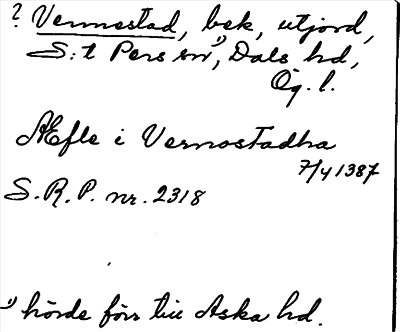 ? Vernestad, bek, utjord,
S:t Pers sn¹⁾, Dals hd,
Ög. l.
Æfle i Vernostadha
7/4 1387
S.R.P. nr. 2318
¹⁾ hörde förr till Aska hd.